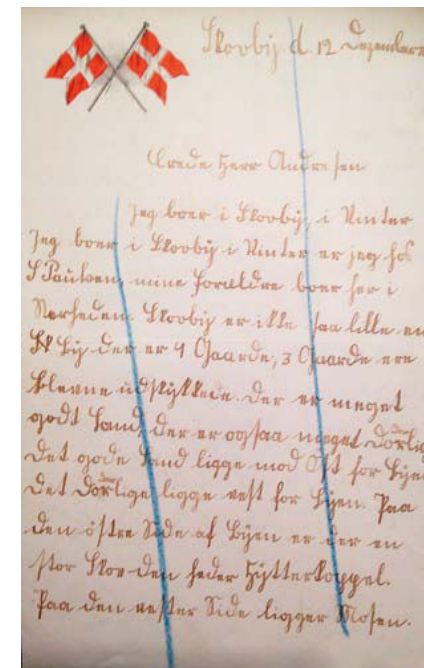 Skovbÿ d. 12 Dezember
Ærede Herr Andresen
Jeg boer i Skovbÿ, i Vinter
Jeg boer i Skovbÿ i Vinter er jeg hos
S Paulsen, mine Forældre boer her i
Nærheden. Skovbÿ er ikke saa lille en
Bÿ der er 9 Gaarde, 3 Gaarde ere
blevne üdstÿkkede. Der er meget
godt Land, der er ogsaa meget Dorlig
Det gode Land ligge mod Öst for Bÿen
Det Dorlige ligge vest for Bÿen. Paa
den östre Side af Bÿen er der en
stor Skov den heder Hÿtterkoppel.
Paa den vester Side ligger Mosen.